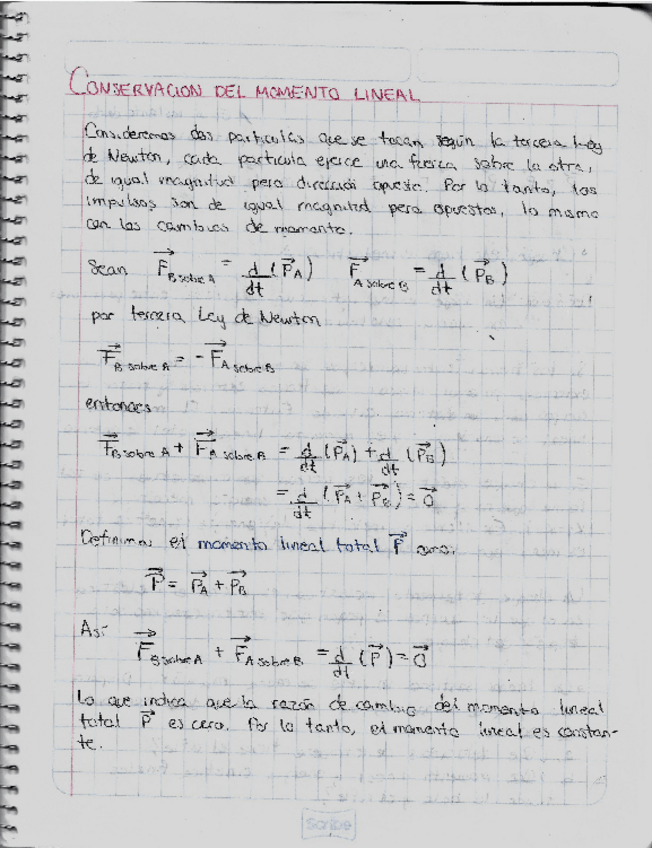 CONSERVACION DEL MOMENTO LINEAL
Consideremos dos partículas que se tocan según la tercera ley
de Newton, cada partícula ejerce una fuerza sobre la otra,
de igual magnitud pero dirección opuesta. Por lo tanto, los
impulsos son de igual magnitud pero opuestos, lo mismo
con los cambios de momento.
Sean F⃗ B sobre A = d/dt (P⃗A) F⃗ A sobre B = d/dt (P⃗B)
por tercera Ley de Newton
F⃗ B sobre A = - F⃗ A sobre B
entonces
F⃗ B sobre A + F⃗ A sobre B = d/dt (P⃗A) + d/dt (P⃗B)
= d/dt (P⃗A + P⃗B) = 0⃗
Definimos el momento lineal total P⃗ como:
P⃗ = P⃗A + P⃗B
Así
F⃗ B sobre A + F⃗ A sobre B = d/dt (P⃗) = 0⃗
Lo que indica que la razón de cambio del momento lineal
total P⃗ es cero. Por lo tanto, el momento lineal es constan-
te.
Scribe